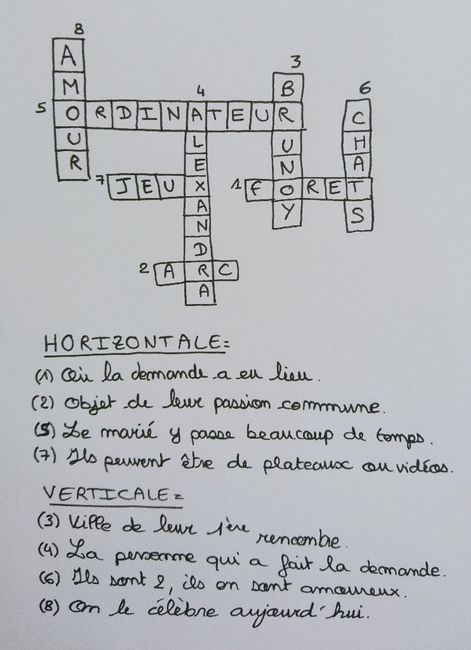 8
A 3
M 4 B 6
5 O R D I N A T E U R C
U L U H
R E N A
7 J E U X 1 F O R E T
A Y S
N
D
2 A R C
A
HORIZONTALE=
(1) Où la demande a eu lieu.
(2) Objet de leur passion commune.
(5) Le marié y passe beaucoup de temps.
(7) Ils peuvent être de plateaux ou vidéos.
VERTICALE=
(3) Ville de leur 1ère rencontre.
(4) La personne qui a fait la demande.
(6) Ils sont 2, ils en sont amoureux.
(8) On le célèbre aujourd'hui.